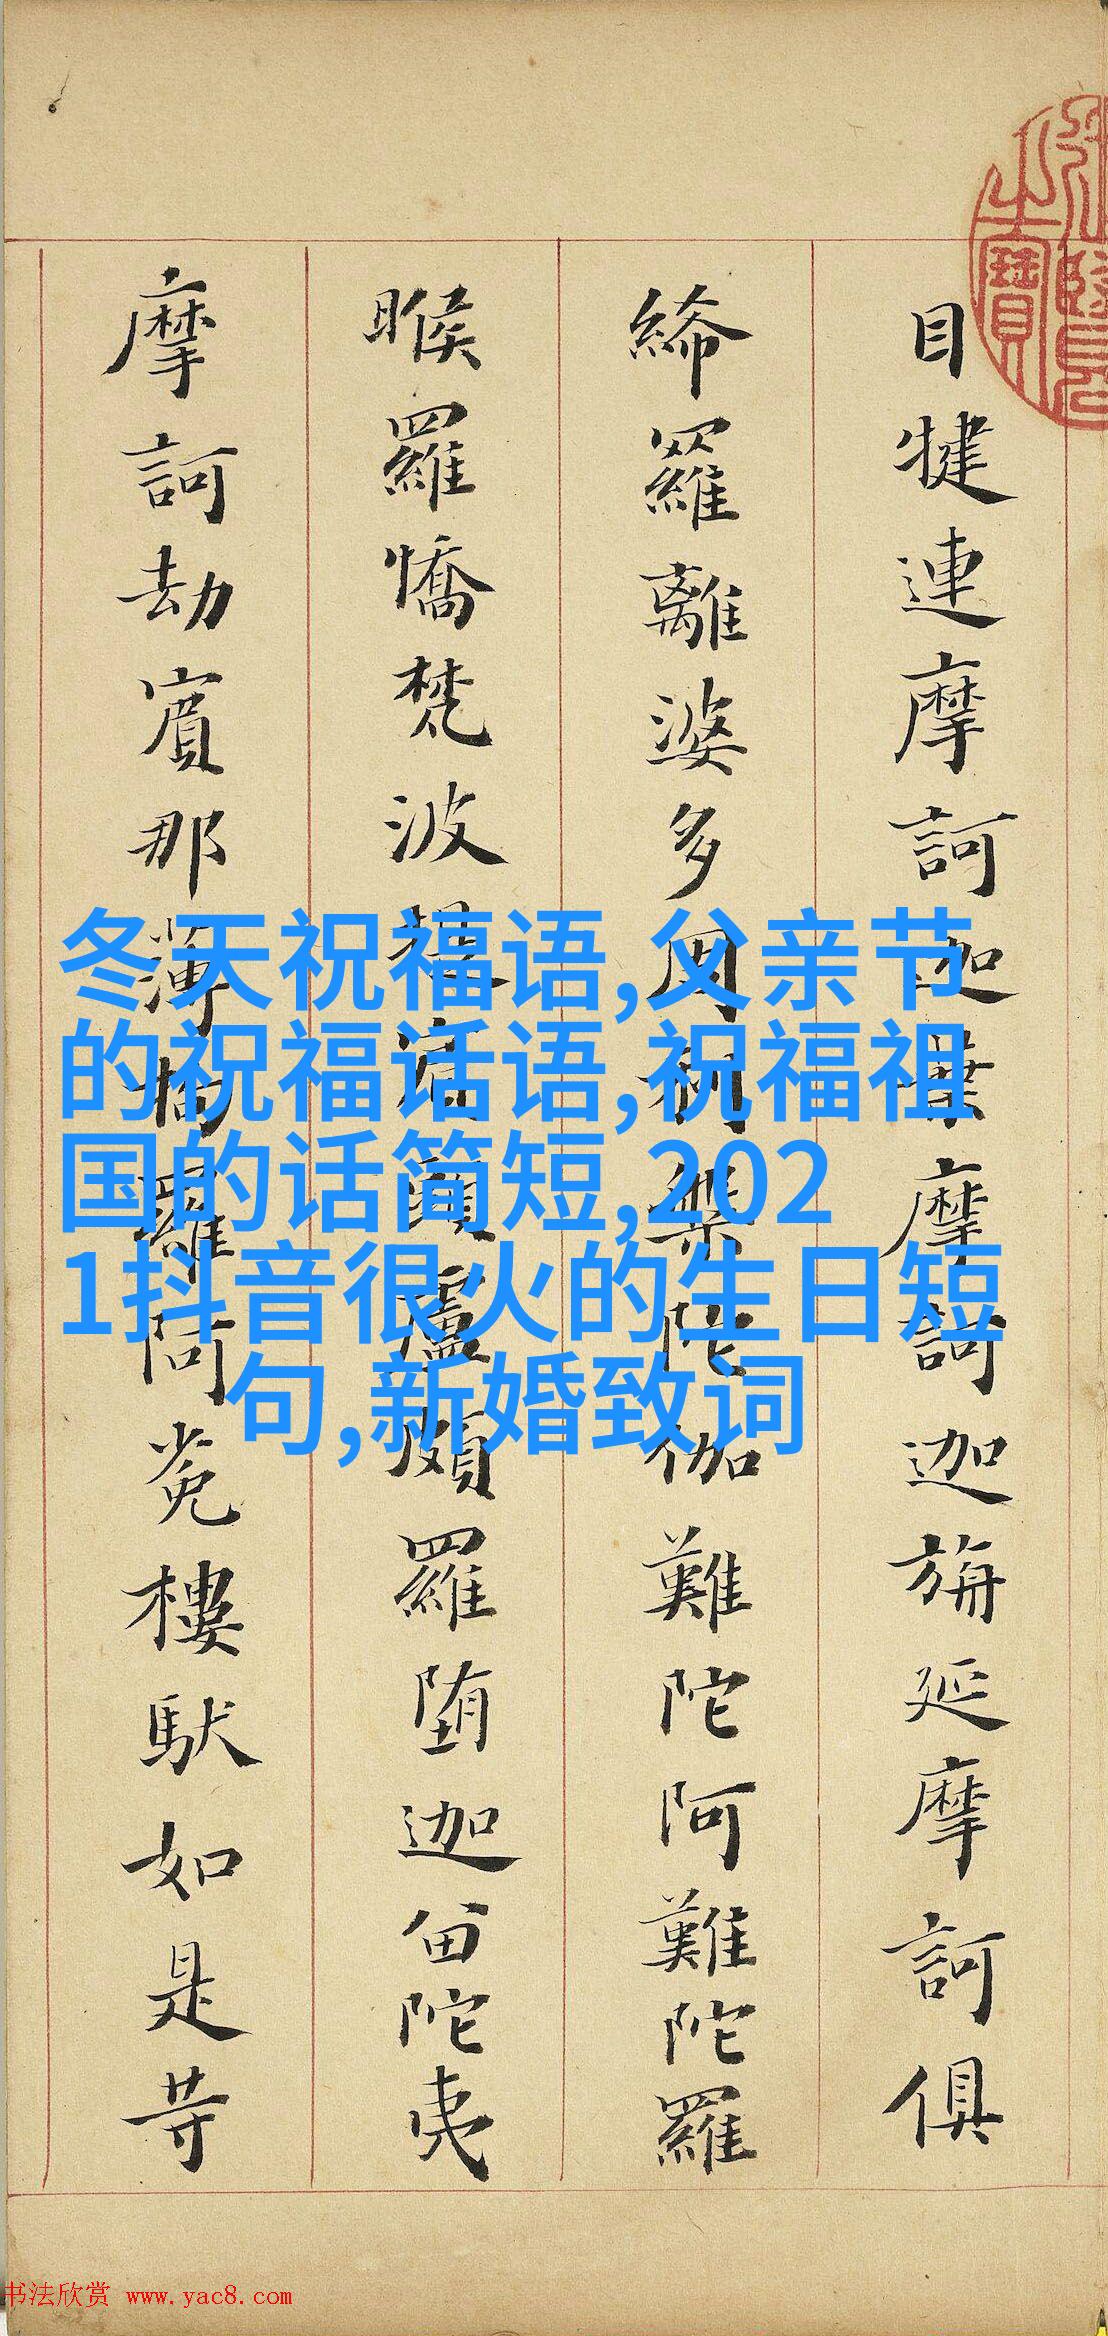 目犍連摩訶迦葉摩訶迦旃延摩訶俱
絺羅離婆多周利槃陀伽難陀阿難陀羅
睺羅憍梵波提賓頭盧頗羅堕迦留陀夷
摩訶劫賓那薄拘羅阿㝹樓馱如是等
之寶
冬天祝福语,父亲节
的祝福话语,祝福祖
国的话简短,202
1抖音很火的生日短
句,新婚致词
书法欣赏 www.yac8.com